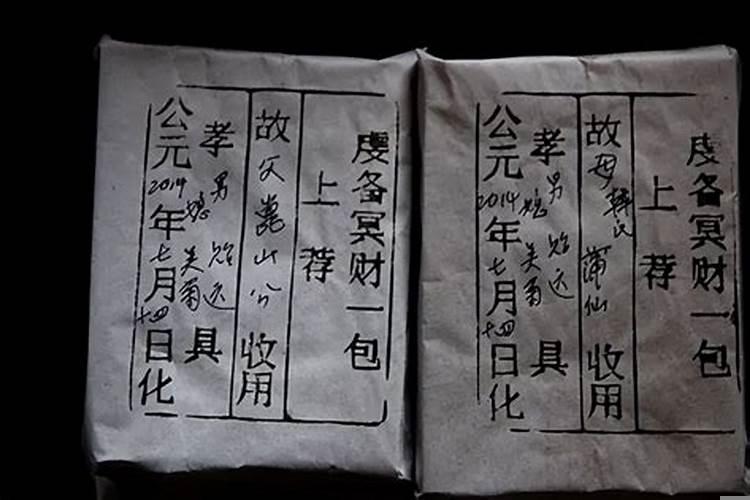 虔备冥财一包
上荐
故父山公收用
孝男远媳菊具
公元2014年七月十四日化
虔备冥财一包
上荐
故母韩氏蒲仙收用
孝男远媳菊具
公元2014年七月十四日化